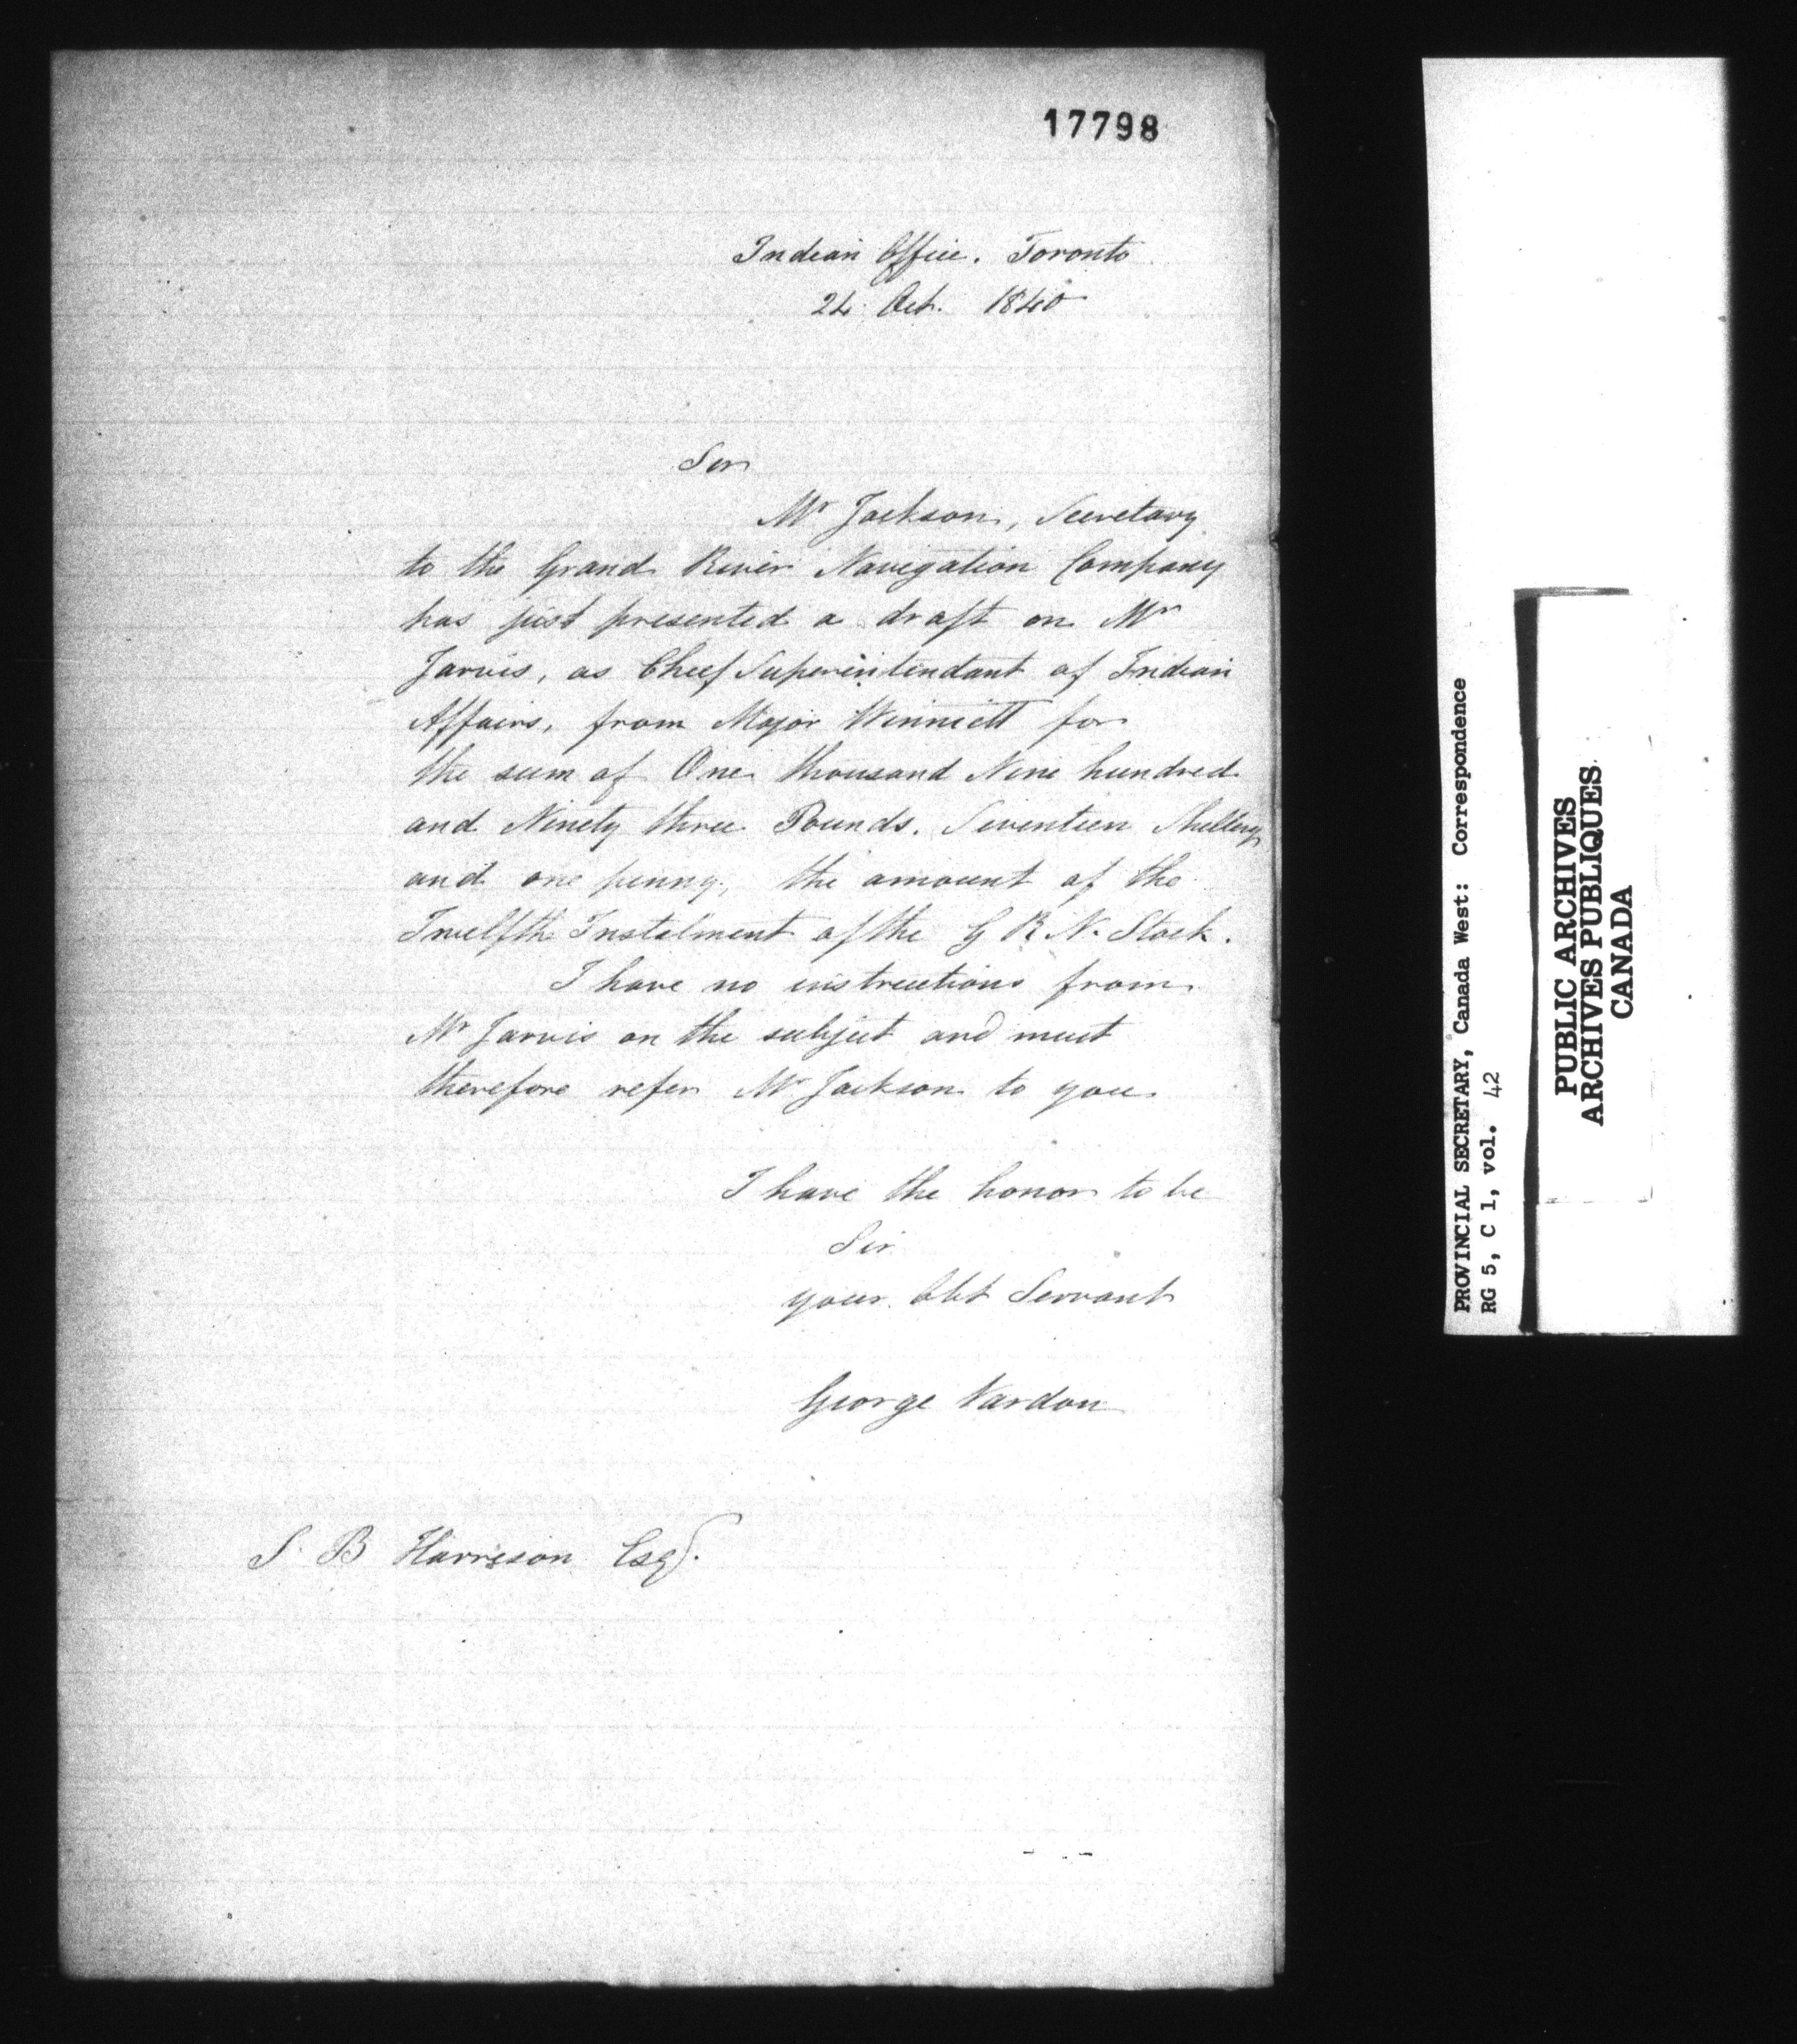 17798
Indian Office. Toronto
24 Oct. 1840
Sir
Mr Jackson, Secretary
to the Grand River Navigation Company
has just presented a draft on Mr
Jarvis, as Chief Superintendant of Indian
Affairs, from Major Winniett for
the sum of One thousand Nine hundred
and Ninety three Pounds. Seventeen Shillings
and one penny, the amount of the
Twelfth Instalment of the G R N. Stock.
I have no instructions from
Mr Jarvis on the subject and must
therefore refer Mr Jackson to you
I have the honor to be
Sir
your Obt Servant
George Vardon
S. B Harrison Esqr.
PROVINCIAL SECRETARY, Canada West: Correspondence
RG 5, C 1, vol. 42
PUBLIC ARCHIVES
ARCHIVES PUBLIQUES
CANADA